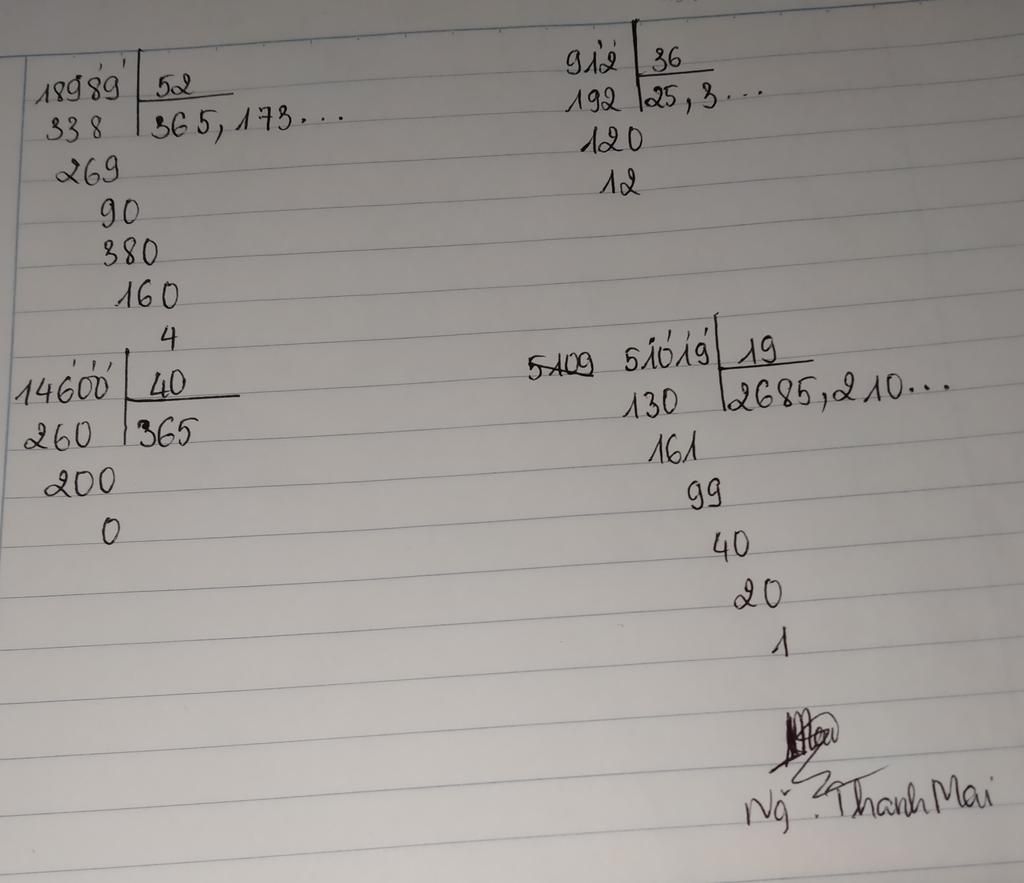 18989 52
338 365,173...
269
90
380
160
4
912 36
192 25,3...
120
12
14600 40
260 365
200
0
5109 51019 19
130 2685,210...
161
99
40
20
1
Ng̃. Thanh Mai